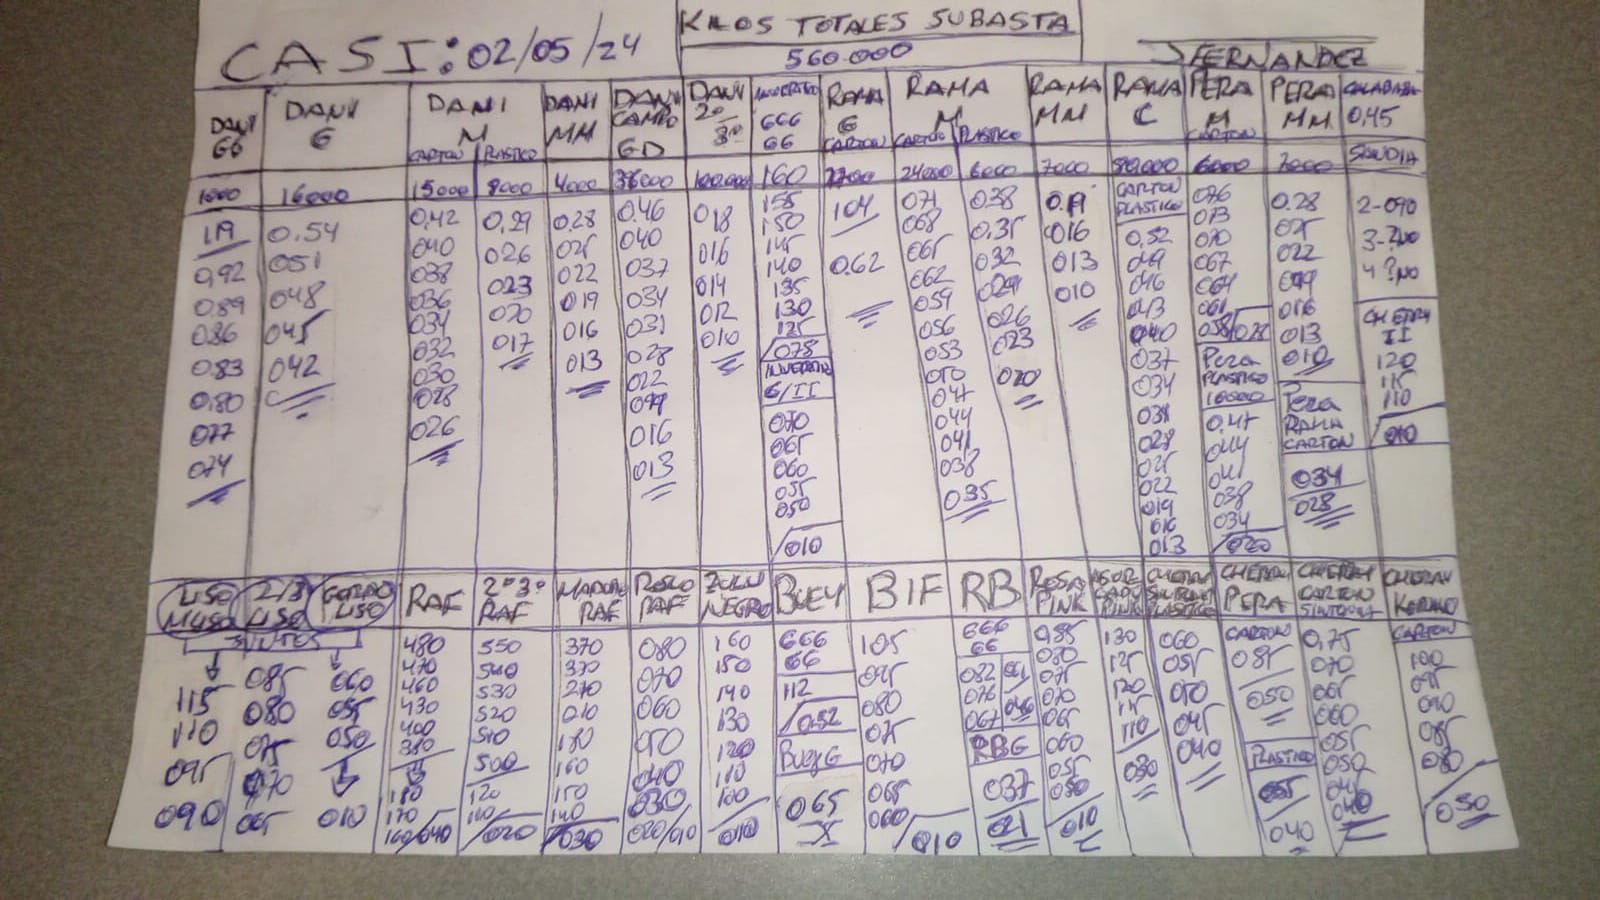 CASI: 02/05/24
KILOS TOTALES SUBASTA
560.000
JFERNANDEZ
DANI GG
1000
1,19
0,92
0,89
0,86
0,83
0,80
0,77
0,74
DANI G
16000
0.54
051
048
045
042
DANI M
CARTON
15000
0,42
040
038
036
034
032
030
028
026
PLASTICO
8000
0,29
026
023
020
017
DANI MM
4000
0.28
025
022
019
016
013
DANI CAMPO GD
36000
0.46
040
037
034
031
028
022
019
016
013
DANI 2º 3º
100.000
018
016
014
012
010
INVERTIDO
GGG
GG
160
155
150
145
140
135
130
125
/075
G/II
070
065
060
055
050
/010
RAMA G
CARTON
104
0.62
RAMA M
CARTON
24000
071
068
065
062
059
056
053
050
047
044
041
038
035
PLASTICO
6000
0.38
0.35
032
029
026
023
020
RAMA MM
7000
0.19
016
013
010
RAMA C
80.000
CARTON
PLASTICO
0,52
049
046
043
040
037
034
031
028
025
022
019
016
013
PERA M
CARTON
6000
076
073
070
067
064
061
058/028
Pera
PLASTICO
10000
0,47
044
041
038
034
/020
PERA MM
0.28
025
022
019
016
013
010
Pera
RAMA
CARTON
034
028
CALABAZA
0,45
SANDIA
2-090
4?NO
CHERRY
II
120
115
110
/010
LISO
2/3
LISO
LISO
JUNTOS
115
110
095
090
085
080
075
070
065
060
055
050
010
RAF
480
470
460
430
400
380
180
170
160/040
2º3º
RAF
550
540
530
520
510
500
120
110
/020
MADURO
RAF
370
330
270
210
180
160
150
140
/030
RAF
080
070
060
050
040
030
020/010
NEGRO
160
150
140
130
120
110
100
/010
BUEY
GGG
GG
112
/0.52
BUEYG
065
BIF
105
095
080
075
070
065
060
/010
RB
GGG
GG
082
076
067
RBG
037
021
ROSA
PINK
0,85
080
075
070
065
060
055
050
/010
PINK
130
125
120
115
110
030
CHERRY
PLASTICO
060
055
050
045
040
CHERRY
PERA
CARTON
085
050
PLASTICO
055
040
CHERRY
CARTON
0,75
070
065
060
055
050
045
040
CHERRY
KUMATO
CARTON
100
095
090
085
080
/050